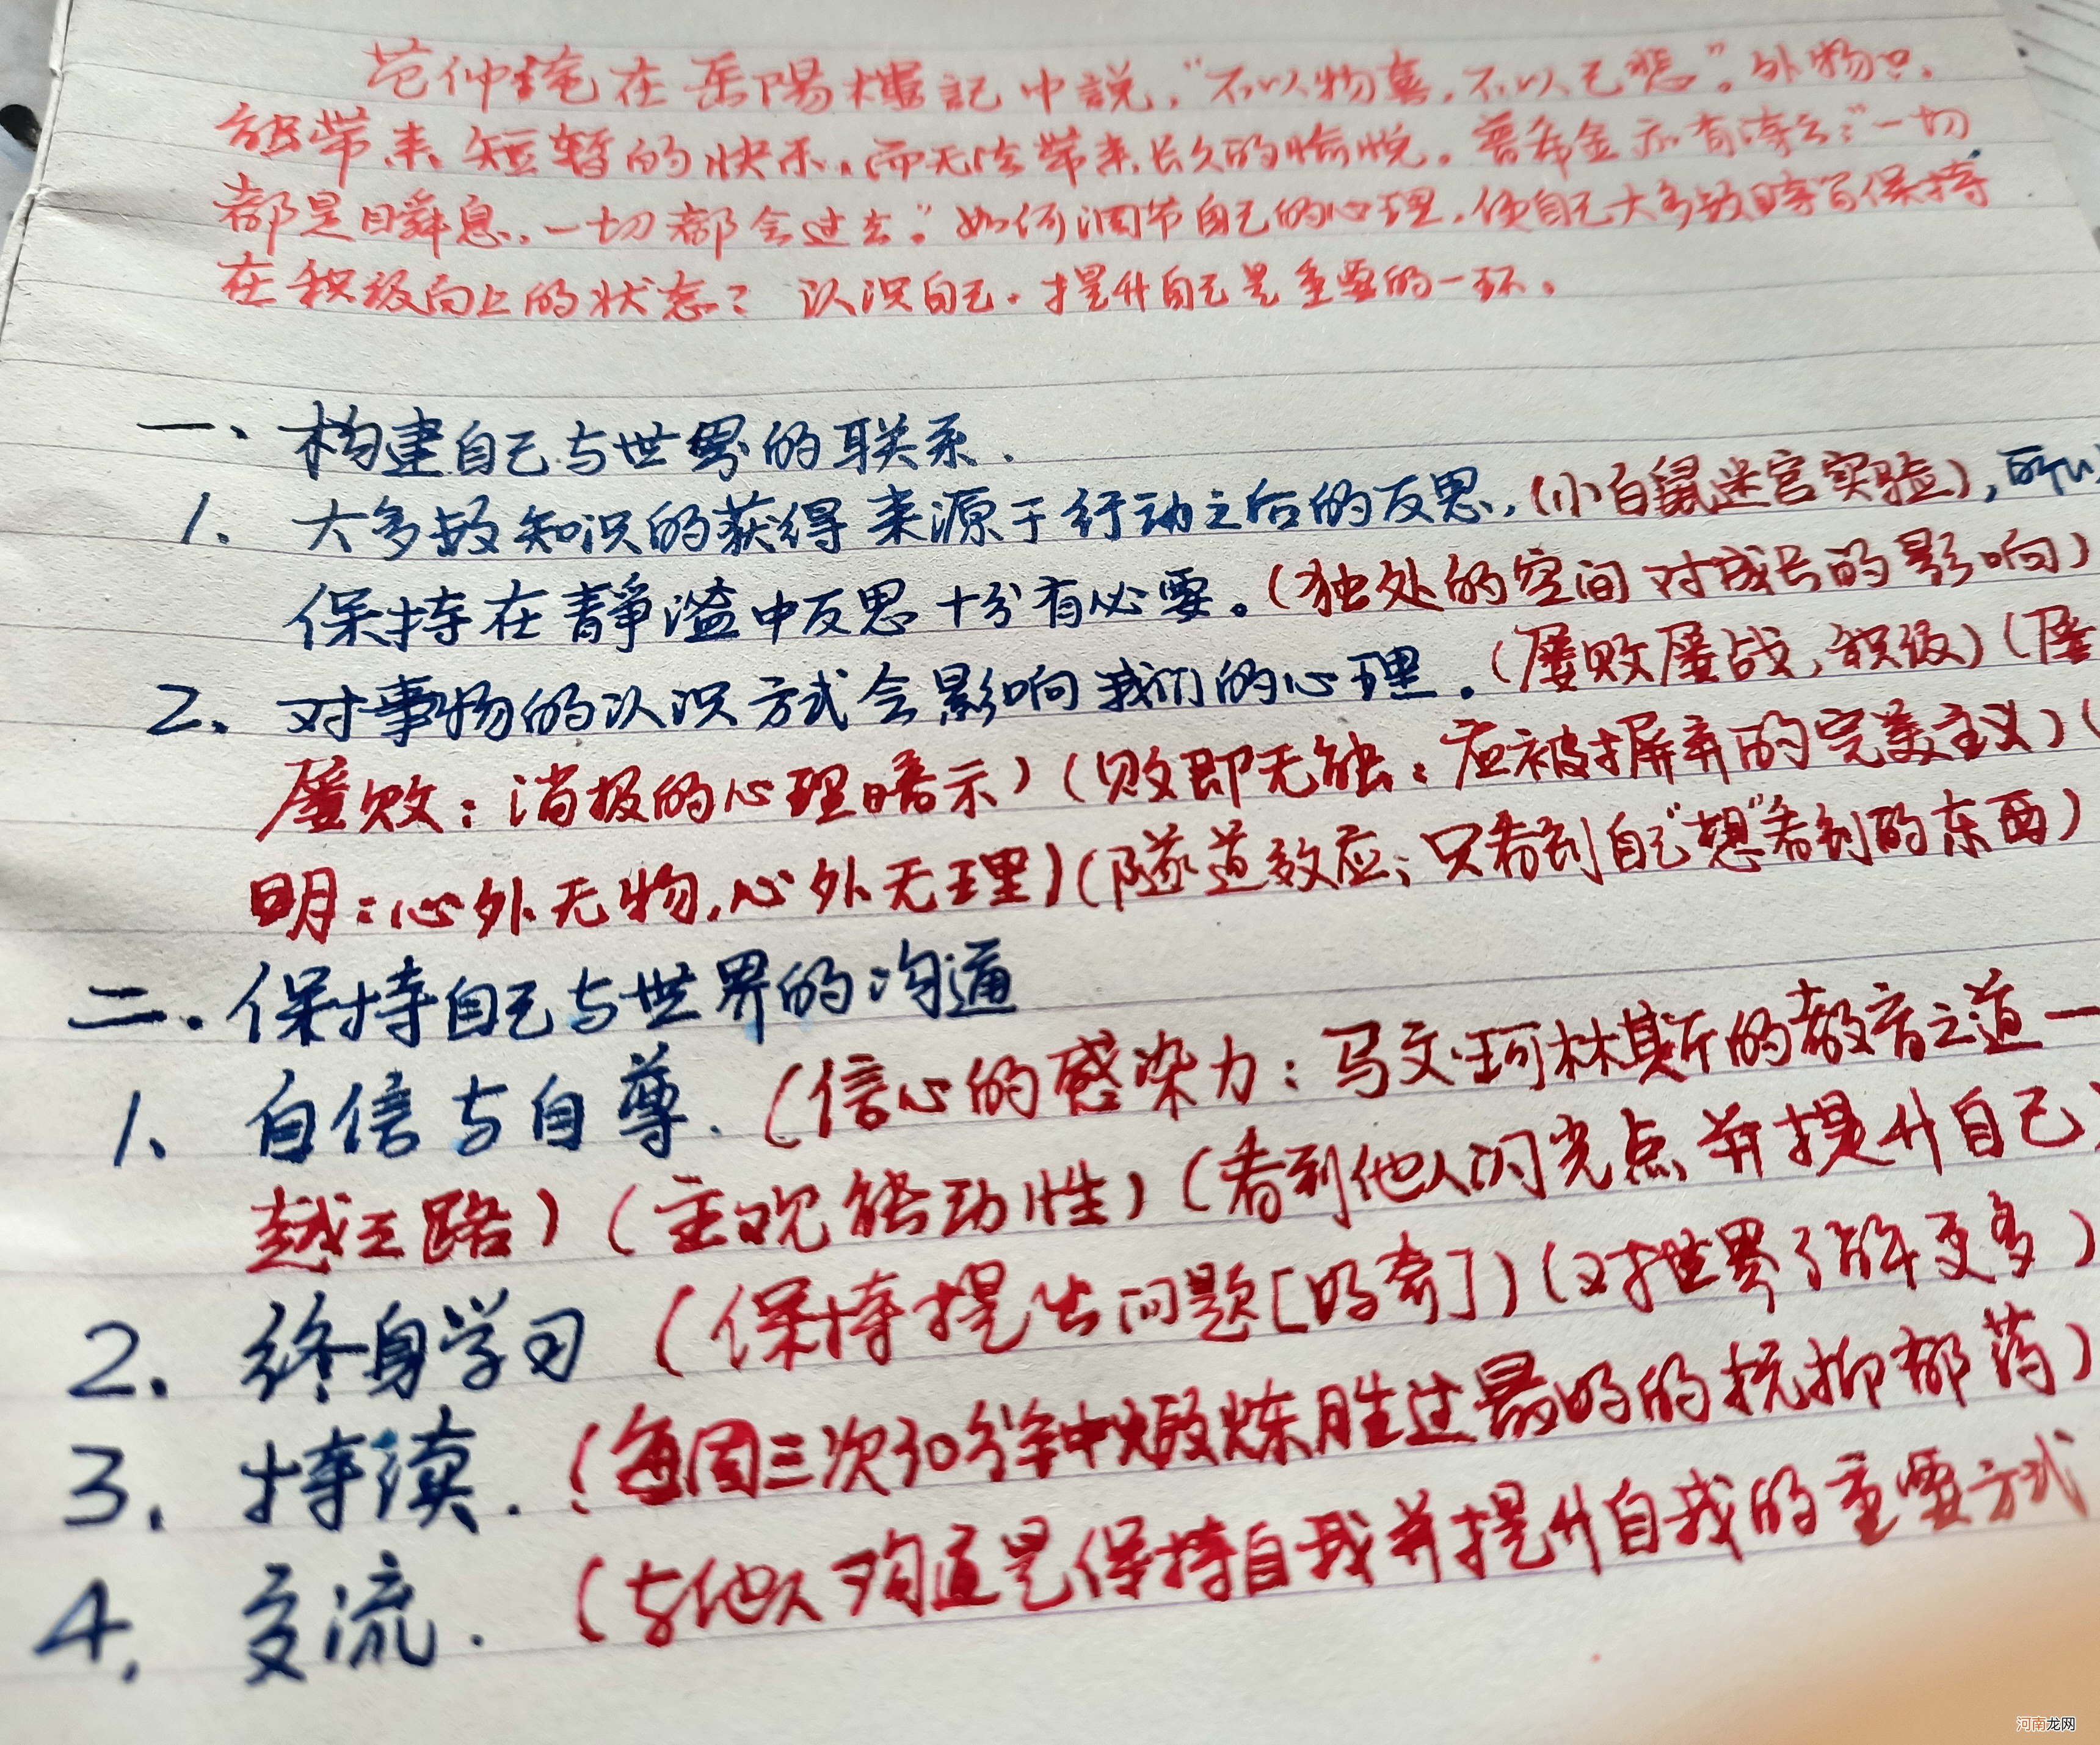 范仲淹在岳陽樓記中説，“不以物喜，不以己悲”。外物只
能带来短暂的快乐，而无法带来长久的愉悦。普希金亦有诗云：“一切
都是瞬息，一切都会过去。”如何调节自己的心理，使自己大多数時宮保持
在积极向上的状态？认识自己，提升自己是重要的一环。
一、构建自己与世界的联系．
1．大多数知识的获得来源于行动之后的反思，（小白鼠迷宫实验），所以
保持在静溢中反思十分有必要。（独处的空间对成长的影响）
2、对事物的认识方式会影响我们的心理．（屡败屡战，积极）（屡
屡败：消极的心理暗示）（败即无能：应被摒弃的完美主义）（
明：心外无物，心外无理）（隧道效应；只看到自己“想”看到的东西）
二．保持自己与世界的沟通
1、自信与自尊．（信心的感染力：马文·珂林斯的教育之道一
越之路）（主观能动性）（看到他人闪光点并提升自己
2．终身学习（保持提出问题[好奇]）（对世界了解更多）
3．持续．（每周三次30分钟中煅炼胜过最好的抗抑郁药）
4．交流．（与他人沟通是保持自我并提升自我的重要方式
河南龙网